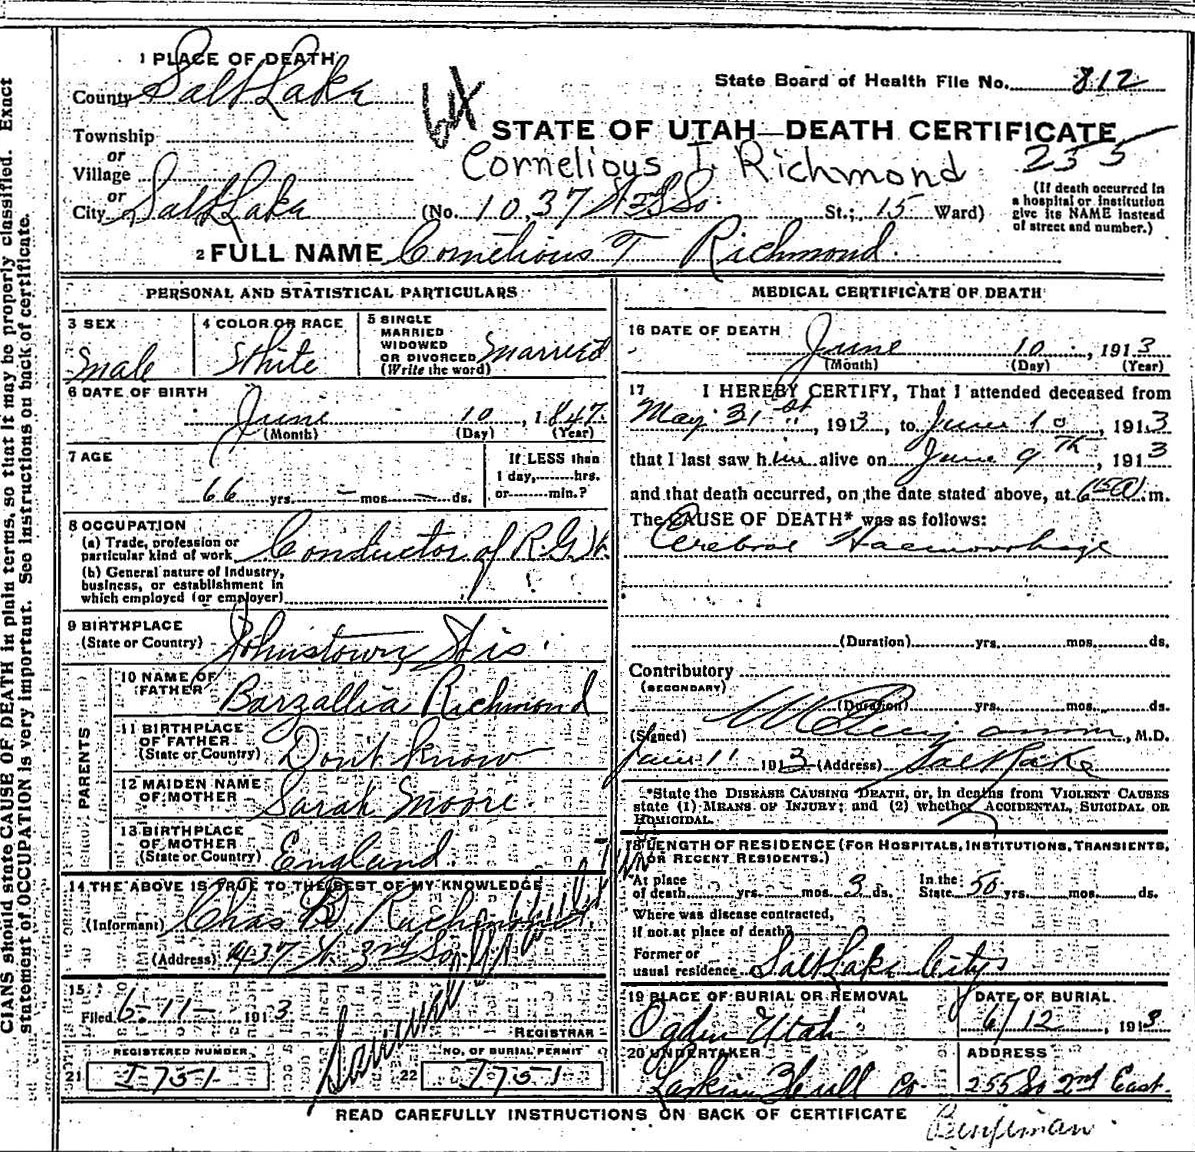 1 PLACE OF DEATH
County Salt Lake
State Board of Health File No. 812
Township
or
Village
or
City Salt Lake
STATE OF UTAH—DEATH CERTIFICATE
Cornelious T Richmond 235
(No. 1037 St.; 15 Ward)
(If death occurred in a hospital or institution give its NAME instead of street and number.)
2 FULL NAME Cornelious T Richmond
PERSONAL AND STATISTICAL PARTICULARS
3 SEX Male
4 COLOR OR RACE White
5 SINGLE MARRIED WIDOWED OR DIVORCED (Write the word) Married
6 DATE OF BIRTH
June 10, 1847
(Month) (Day) (Year)
7 AGE
66 yrs. – mos. – ds.
If LESS than 1 day, hrs. or min.?
8 OCCUPATION
(a) Trade, profession or particular kind of work Conductor of R.G.W.
(b) General nature of Industry, business, or establishment in which employed (or employer)
9 BIRTHPLACE
(State or Country) Johnstown Wis.
PARENTS
10 NAME OF FATHER Barzallia Richmond
11 BIRTHPLACE OF FATHER (State or Country) Dont know
12 MAIDEN NAME OF MOTHER Sarah Moore
13 BIRTHPLACE OF MOTHER (State or Country) England
14 THE ABOVE IS TRUE TO THE BEST OF MY KNOWLEDGE
(Informant) Chas B. Richmond
(Address) 437 W 3rd So
15
Filed 6-11- 1913
REGISTRAR
REGISTERED NUMBER
21 I751
NO. OF BURIAL PERMIT
22 I751
MEDICAL CERTIFICATE OF DEATH
16 DATE OF DEATH
June 10, 1913
(Month) (Day) (Year)
17 I HEREBY CERTIFY, That I attended deceased from
May 31st, 1913, to June 10, 1913
that I last saw him alive on June 9th, 1913
and that death occurred, on the date stated above, at m.
The CAUSE OF DEATH* was as follows:
Cerebral Haemorrhage
(Duration) yrs. mos. ds.
Contributory
(SECONDARY)
(Duration) yrs. mos. ds.
(Signed) , M.D.
11 1913 (Address) Salt Lake
*State the DISEASE CAUSING DEATH, or, in deaths from VIOLENT CAUSES state (1) MEANS OF INJURY; and (2) whether ACCIDENTAL, SUICIDAL OR HOMICIDAL.
18 LENGTH OF RESIDENCE (FOR HOSPITALS, INSTITUTIONS, TRANSIENTS, OR RECENT RESIDENTS.)
At place of death yrs. mos. 3 ds. In the State 50 yrs. mos. ds.
Where was disease contracted, if not at place of death?
Former or usual residence Salt Lake City
19 PLACE OF BURIAL OR REMOVAL
Ogden Utah
DATE OF BURIAL
6/12, 1913
20 UNDERTAKER
Co.
ADDRESS
255 So 2nd East
READ CAREFULLY INSTRUCTIONS ON BACK OF CERTIFICATE
Benjiman
CIANS should state CAUSE OF DEATH in plain terms, so that it may be properly classified. Exact
statement of OCCUPATION is very important. See instructions on back of certificate.